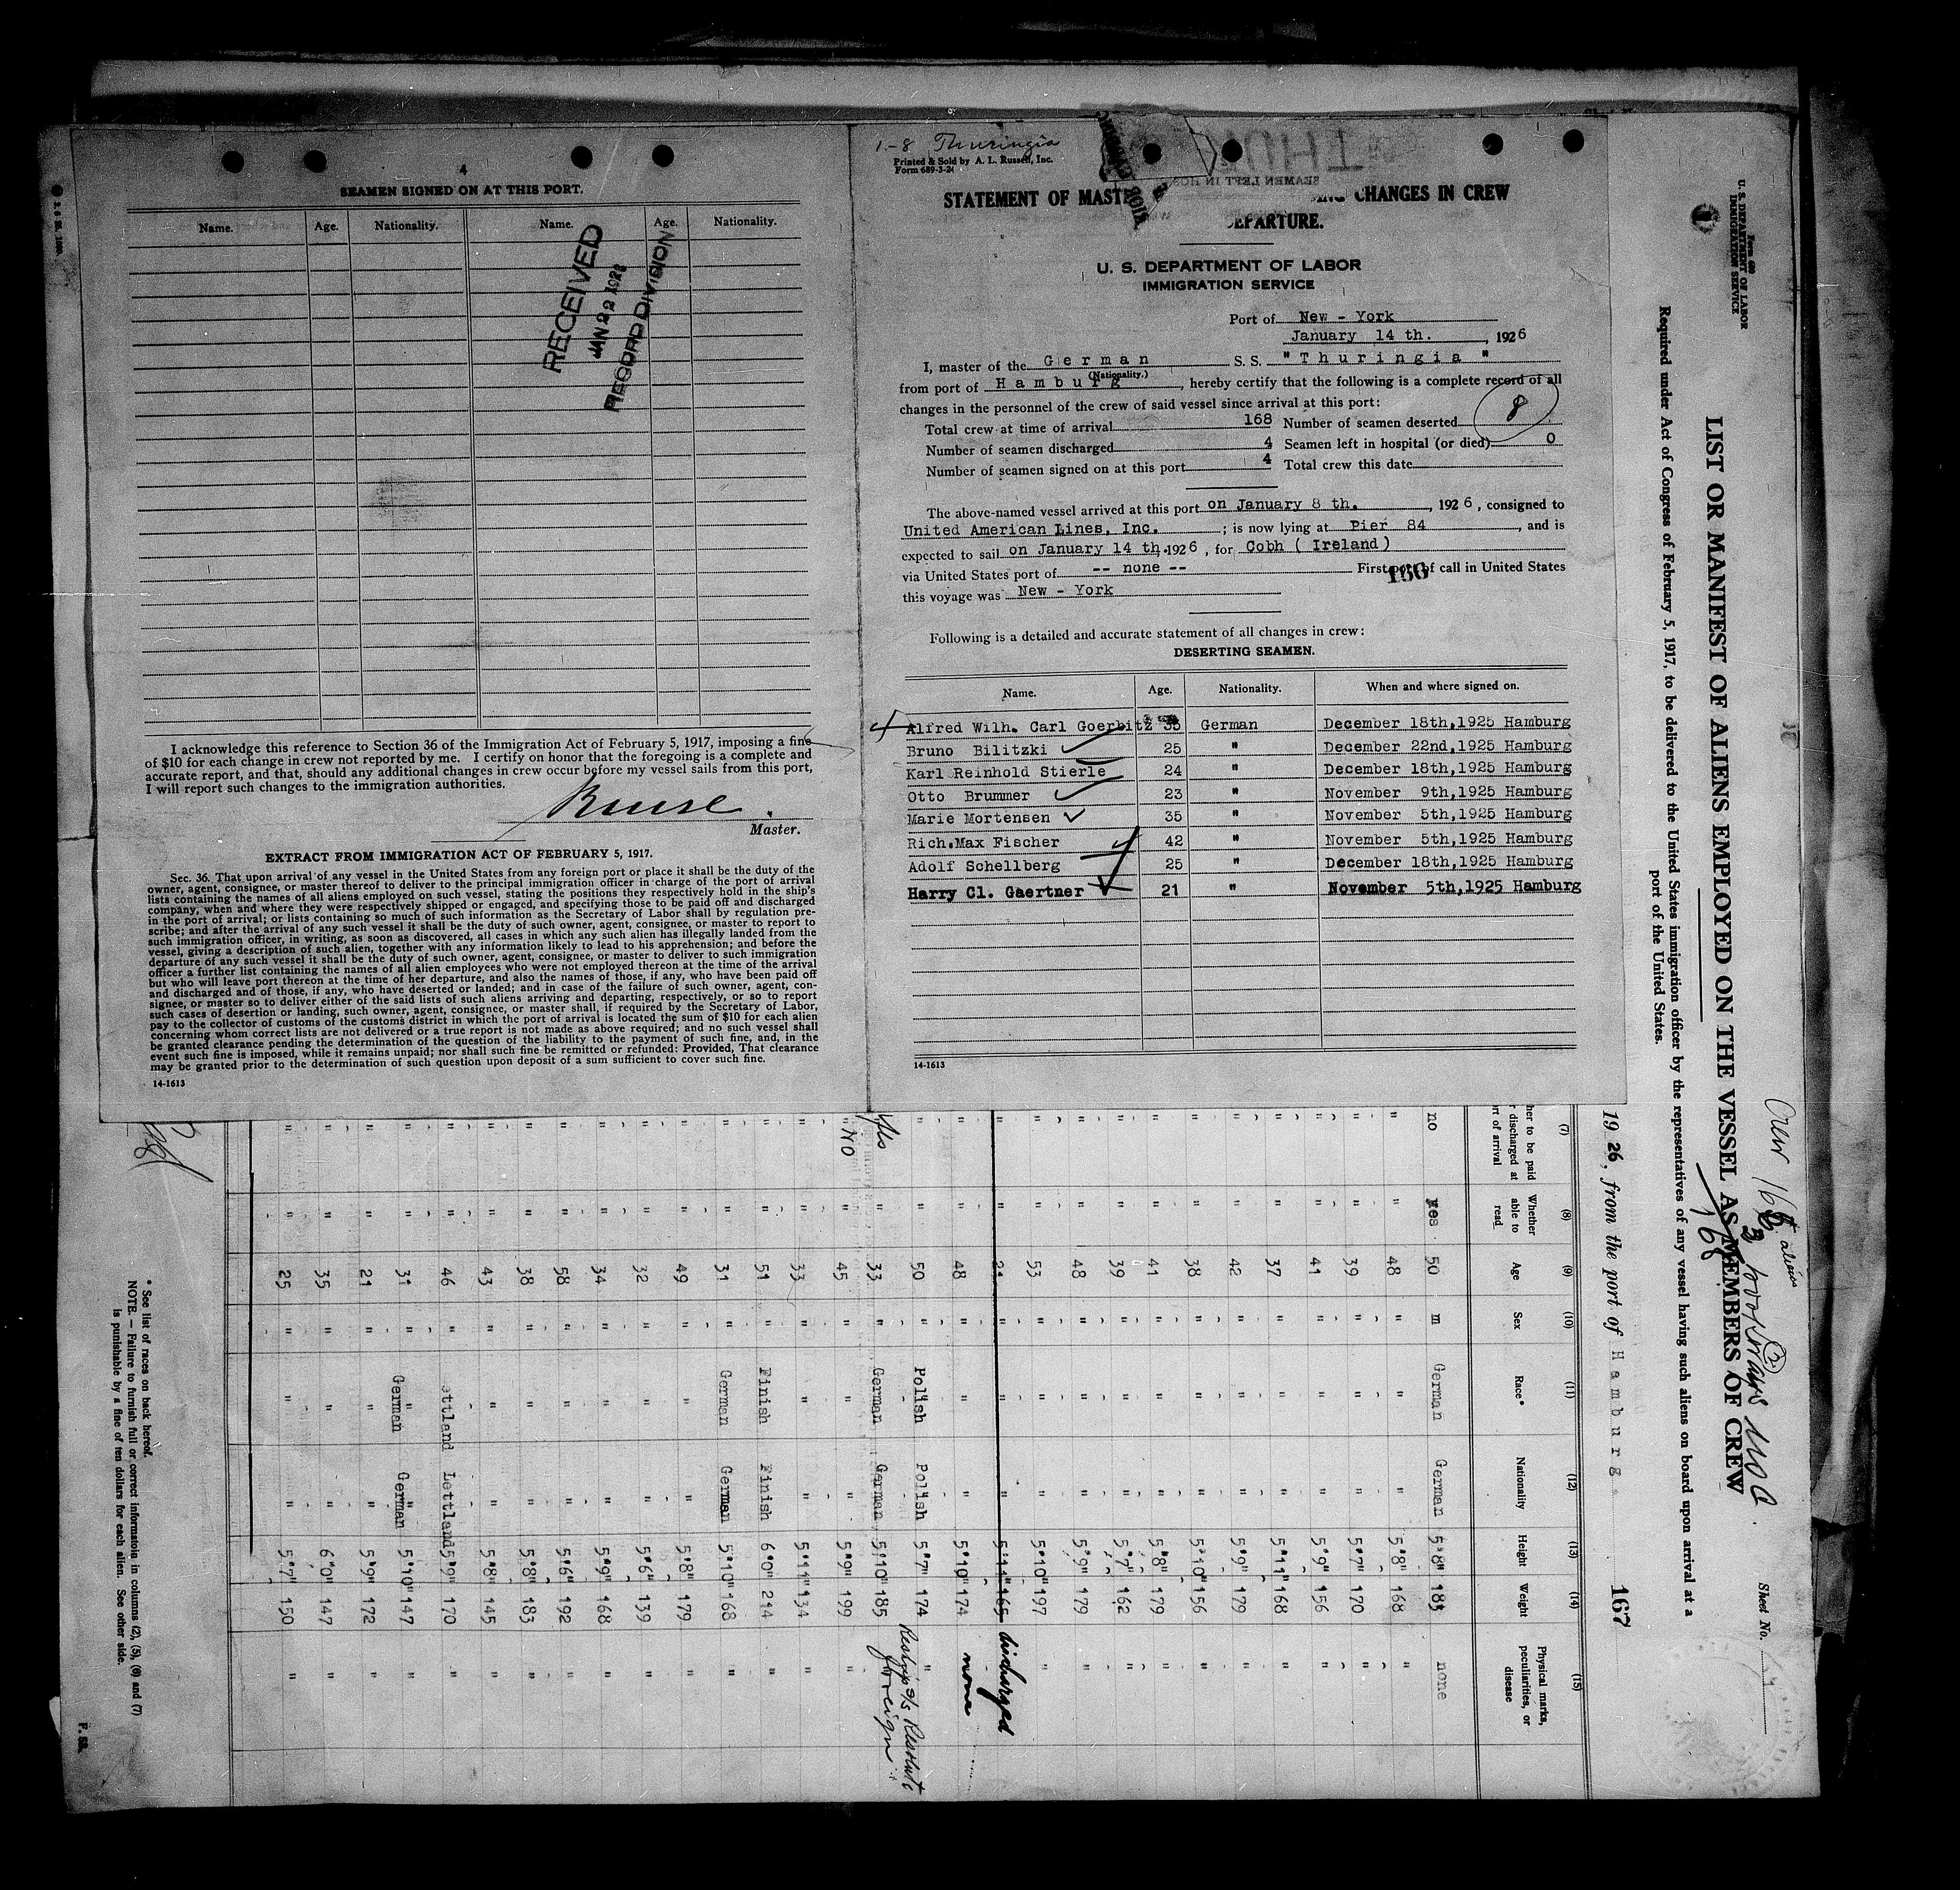 4
SEAMEN SIGNED ON AT THIS PORT.
Name. Age. Nationality. Name. Age. Nationality.
RECEIVED
JAN 22 1926
RECORD DIVISION
I acknowledge this reference to Section 36 of the Immigration Act of February 5, 1917, imposing a fine
of $10 for each change in crew not reported by me. I certify on honor that the foregoing is a complete and
accurate report, and that, should any additional changes in crew occur before my vessel sails from this port,
I will report such changes to the immigration authorities.
Master.
EXTRACT FROM IMMIGRATION ACT OF FEBRUARY 5, 1917.
Sec. 36. That upon arrival of any vessel in the United States from any foreign port or place it shall be the duty of the
owner, agent, consignee, or master thereof to deliver to the principal immigration officer in charge of the port of arrival
lists containing the names of all aliens employed on such vessel, stating the positions they respectively hold in the ship's
company, when and where they were respectively shipped or engaged, and specifying those to be paid off and discharged
in the port of arrival; or lists containing so much of such information as the Secretary of Labor shall by regulation pre-
scribe; and after the arrival of any such vessel it shall be the duty of such owner, agent, consignee, or master to report to
such immigration officer, in writing, as soon as discovered, all cases in which any such alien has illegally landed from the
vessel, giving a description of such alien, together with any information likely to lead to his apprehension; and before the
departure of any such vessel it shall be the duty of such owner, agent, consignee, or master to deliver to such immigration
officer a further list containing the names of all alien employees who were not employed thereon at the time of the arrival
but who will leave port thereon at the time of her departure, and also the names of those, if any, who have been paid off
and discharged and of those, if any, who have deserted or landed; and in case of the failure of such owner, agent, con-
signee, or master so to deliver either of the said lists of such aliens arriving and departing, respectively, or so to report
such cases of desertion or landing, such owner, agent, consignee, or master shall, if required by the Secretary of Labor,
pay to the collector of customs of the customs district in which the port of arrival is located the sum of $10 for each alien
concerning whom correct lists are not delivered or a true report is not made as above required; and no such vessel shall
be granted clearance pending the determination of the question of the liability to the payment of such fine, and, in the
event such fine is imposed, while it remains unpaid; nor shall such fine be remitted or refunded: Provided, That clearance
may be granted prior to the determination of such question upon deposit of a sum sufficient to cover such fine.
14-1613
1-8 Thuringia
Printed & Sold by A. L. Russell, Inc.
Form 689-3-24
STATEMENT OF MAST CHANGES IN CREW
EPARTURE.
U. S. DEPARTMENT OF LABOR
IMMIGRATION SERVICE
Port of New - York
January 14 th. , 1926
I, master of the German S. S. "Thuringia"
(Nationality.)
from port of Hamburg, hereby certify that the following is a complete record of all
changes in the personnel of the crew of said vessel since arrival at this port:
Total crew at time of arrival 168 Number of seamen deserted 8
Number of seamen discharged 4 Seamen left in hospital (or died) 0
Number of seamen signed on at this port 4 Total crew this date
The above-named vessel arrived at this port on January 8 th. , 1926, consigned to
United American Lines, Inc. ; is now lying at Pier 84 , and is
expected to sail on January 14 th. 1926, for Cobh ( Ireland )
via United States port of -- none -- First port of call in United States
156
this voyage was New - York
Following is a detailed and accurate statement of all changes in crew:
DESERTING SEAMEN.
Name. Age. Nationality. When and where signed on.
Alfred Wilh. Carl Goerbitz 35 German December 18th,1925 Hamburg
Bruno Bilitzki 25 " December 22nd,1925 Hamburg
Karl Reinhold Stierle 24 " December 18th,1925 Hamburg
Otto Brummer 23 " November 9th,1925 Hamburg
Marie Mortensen 35 " November 5th,1925 Hamburg
Rich.Max Fischer 42 " November 5th,1925 Hamburg
Adolf Schellberg 25 " December 18th,1925 Hamburg
Harry Cl. Gaertner 21 " November 5th,1925 Hamburg
14-1613
Form 680
U. S. DEPARTMENT OF LABOR
IMMIGRATION SERVICE
LIST OR MANIFEST OF ALIENS EMPLOYED ON THE VESSEL AS MEMBERS OF CREW
Required under Act of Congress of February 5, 1917, to be delivered to the United States immigration officer by the representatives of any vessel having such aliens on board upon arrival at a
port of the United States.
Sheet No.
1926, from the port of Hamburg
167
(7) (8) (9) (10) (11) (12) (13) (14) (15)
her to be paid
discharged at
rt of arrival
Whether
able to
read
Age
Sex
Race*
Nationality
Height
Weight
Physical marks,
peculiarities, or
disease
no yes 50 m German German 5'8" 183 none
" " 48 " " " 5'8" 168 "
" " 39 " " " 5'7" 170 "
" " 41 " " " 5'9" 156 "
" " 37 " " " 5'11" 168 "
" " 42 " " " 5'9" 179 "
" " 38 " " " 5'10" 156 "
" " 41 " " " 5'8" 179 "
" " 39 " " " 5'7" 162 "
" " 48 " " " 5'9" 179 "
" " 53 " " " 5'10" 197 "
" " 21 " " " 5'11" 165 discharged
" " 48 " " " 5'10" 174 none
" " 50 " Polish Polish 5'7" 174 "
yes " 33 " German German 5'10" 185 Reship s/s Resolute foreign
" NO " 45 " " " 5'9" 199 "
" " 33 " " " 5'11" 134 "
" " 51 " Finish Finish 6'0" 214 "
" " 31 " German German 5'10" 168 "
" " 49 " " " 5'8" 179 "
" " 32 " " " 5'6" 139 "
" " 34 " " " 5'9" 168 "
" " 58 " " " 5'6" 192 "
" " 38 " " " 5'8" 183 "
" " 43 " " " 5'8" 145 "
" " 46 " ettland Lettland 5'9" 170 "
" " 31 " German German 5'10" 147 "
" " 21 " " " 5'9" 172 "
" " 35 " " " 6'0" 147 "
" " 25 " " " 5'7" 150 "
* See list of races on back hereof.
NOTE. — Failure to furnish full or correct informatoin in columns (2), (5), (6) and (7)
is punishable by a fine of ten dollars for each alien. See other side.
F. 53.